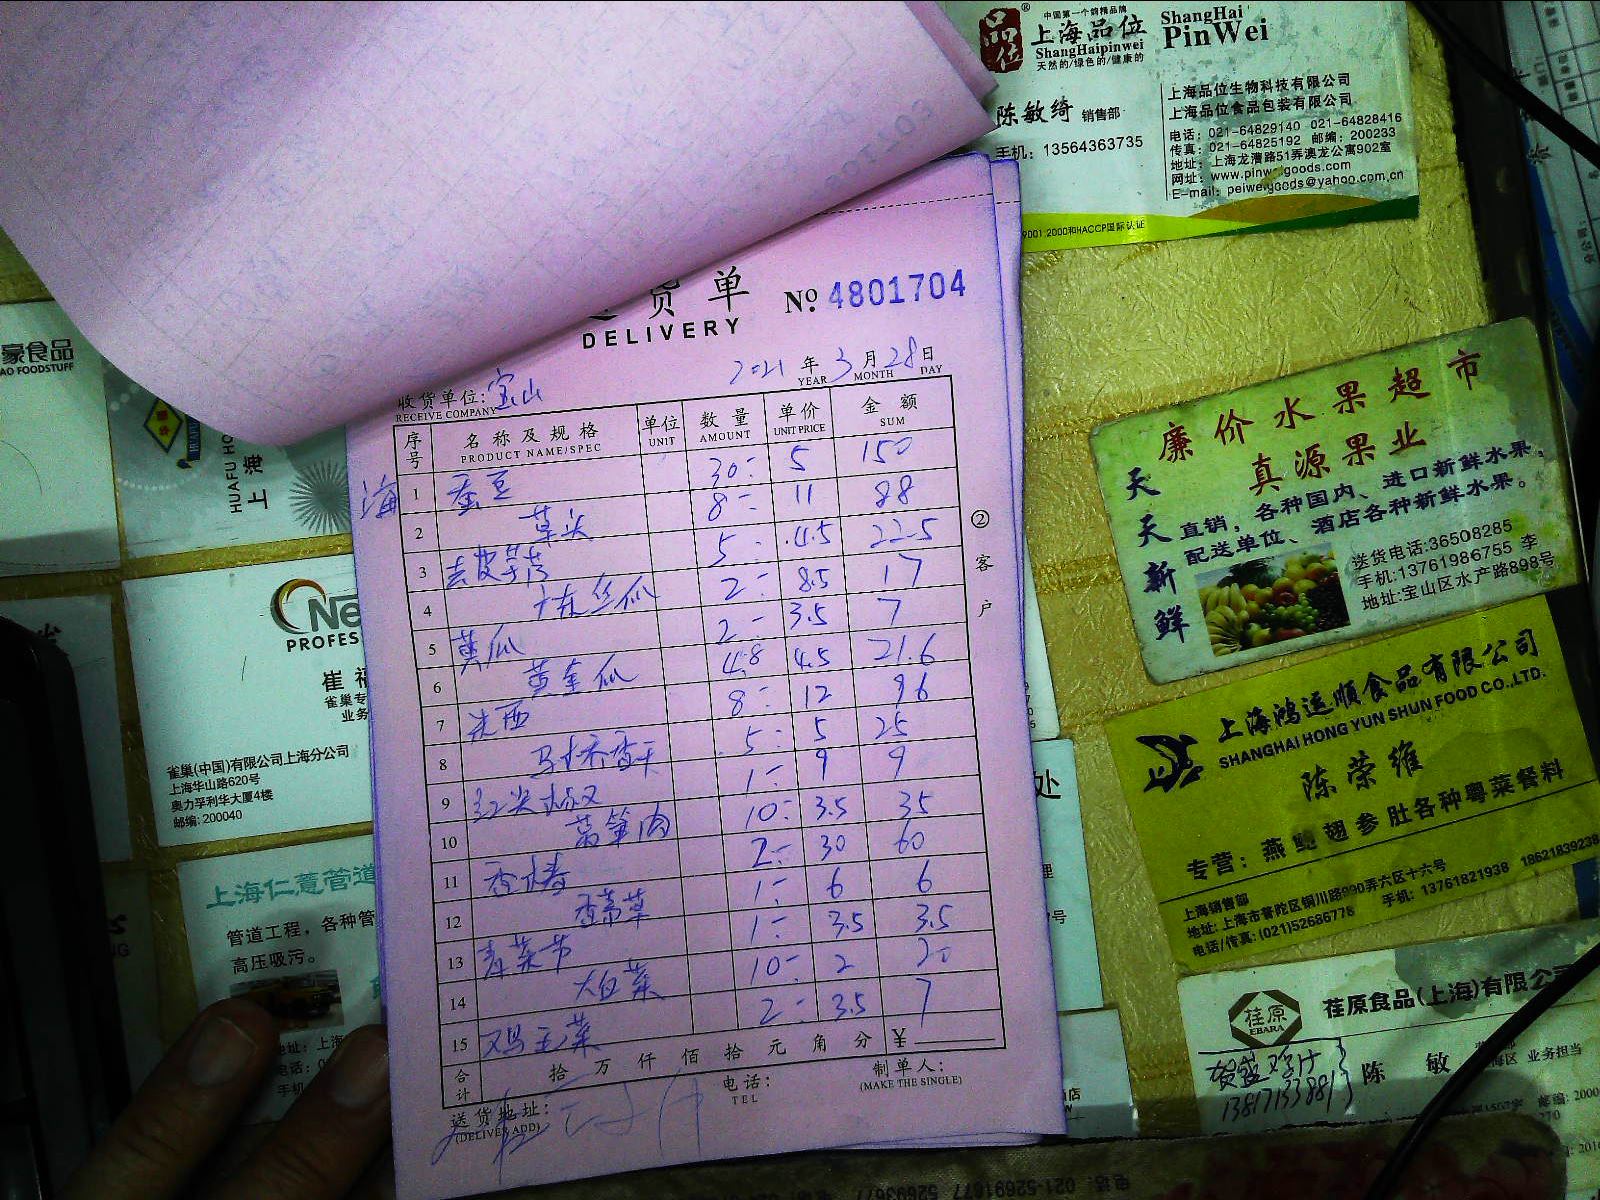 货单
DELIVERY
№ 4801704
2021 年 3 月 28 日
YEAR MONTH DAY
收货单位: 宝山
RECEIVE COMPANY
序号 名称及规格 单位 数量 单价 金额
PRODUCT NAME/SPEC UNIT AMOUNT UNIT PRICE SUM
海
1 蚕豆 30 5 150
2 草头 8 11 88
3 去皮芋艿 5 4.5 22.5
4 丝瓜 2 8.5 17
5 黄瓜 2 3.5 7
6 黄金瓜 4.8 4.5 21.6
7 米西 8 12 96
8 马桥香干 5 5 25
9 红尖椒 1 9 9
10 莴笋肉 10 3.5 35
11 香椿 2 30 60
12 香菜 1 6 6
13 青菜 1 3.5 3.5
14 大白菜 10 2 20
15 鸡毛菜 2 3.5 7
合计 拾 万 仟 佰 拾 元 角 分 ¥
送货地址:
(DELIVER ADD)
电话:
TEL
制单人:
(MAKE THE SINGLE)
② 客户
品位
中国第一个鹅精品牌
上海品位
ShangHaipinwei
天然的/绿色的/健康的
ShangHai
PinWei
陈敏绮 销售部
手机: 13564363735
上海品位生物科技有限公司
上海品位食品包装有限公司
电话: 021-64829140 021-64828416
传真: 021-64825192 邮编: 200233
地址: 上海龙漕路51弄澳龙公寓902室
网址: www.pinweigoods.com
E-mail: peiweigoods@yahoo.com.cn
9001:2000和HACCP国际认证
廉价水果超市
真源果业
天天新鲜
直销,各种国内、进口新鲜水果,
配送单位、酒店各种新鲜水果。
送货电话:36508285
手机:13761986755 李
地址:宝山区水产路898号
上海鸿运顺食品有限公司
SHANGHAI HONG YUN SHUN FOOD CO.,LTD.
陈荣维
专营: 燕鲍翅参肚各种粤菜餐料
上海销售部
地址: 上海市普陀区铜川路990弄六区十六号
电话/传真: (021)52686778 手机: 13761821938 18621839238
荏原
EBARA
荏原食品(上海)有限公
陈 敏
业务担当
13817133881
豪食品
AO FOODSTUFF
HUAFU HO
上海
Ne
PROFES
崔
雀巢专
业务
雀巢(中国)有限公司上海分公司
上海华山路620号
奥力孚利华大厦4楼
邮编: 200040
上海仁薏管道
管道工程, 各种管
高压吸污。
地址: 上海
电话: 0
手机:
处